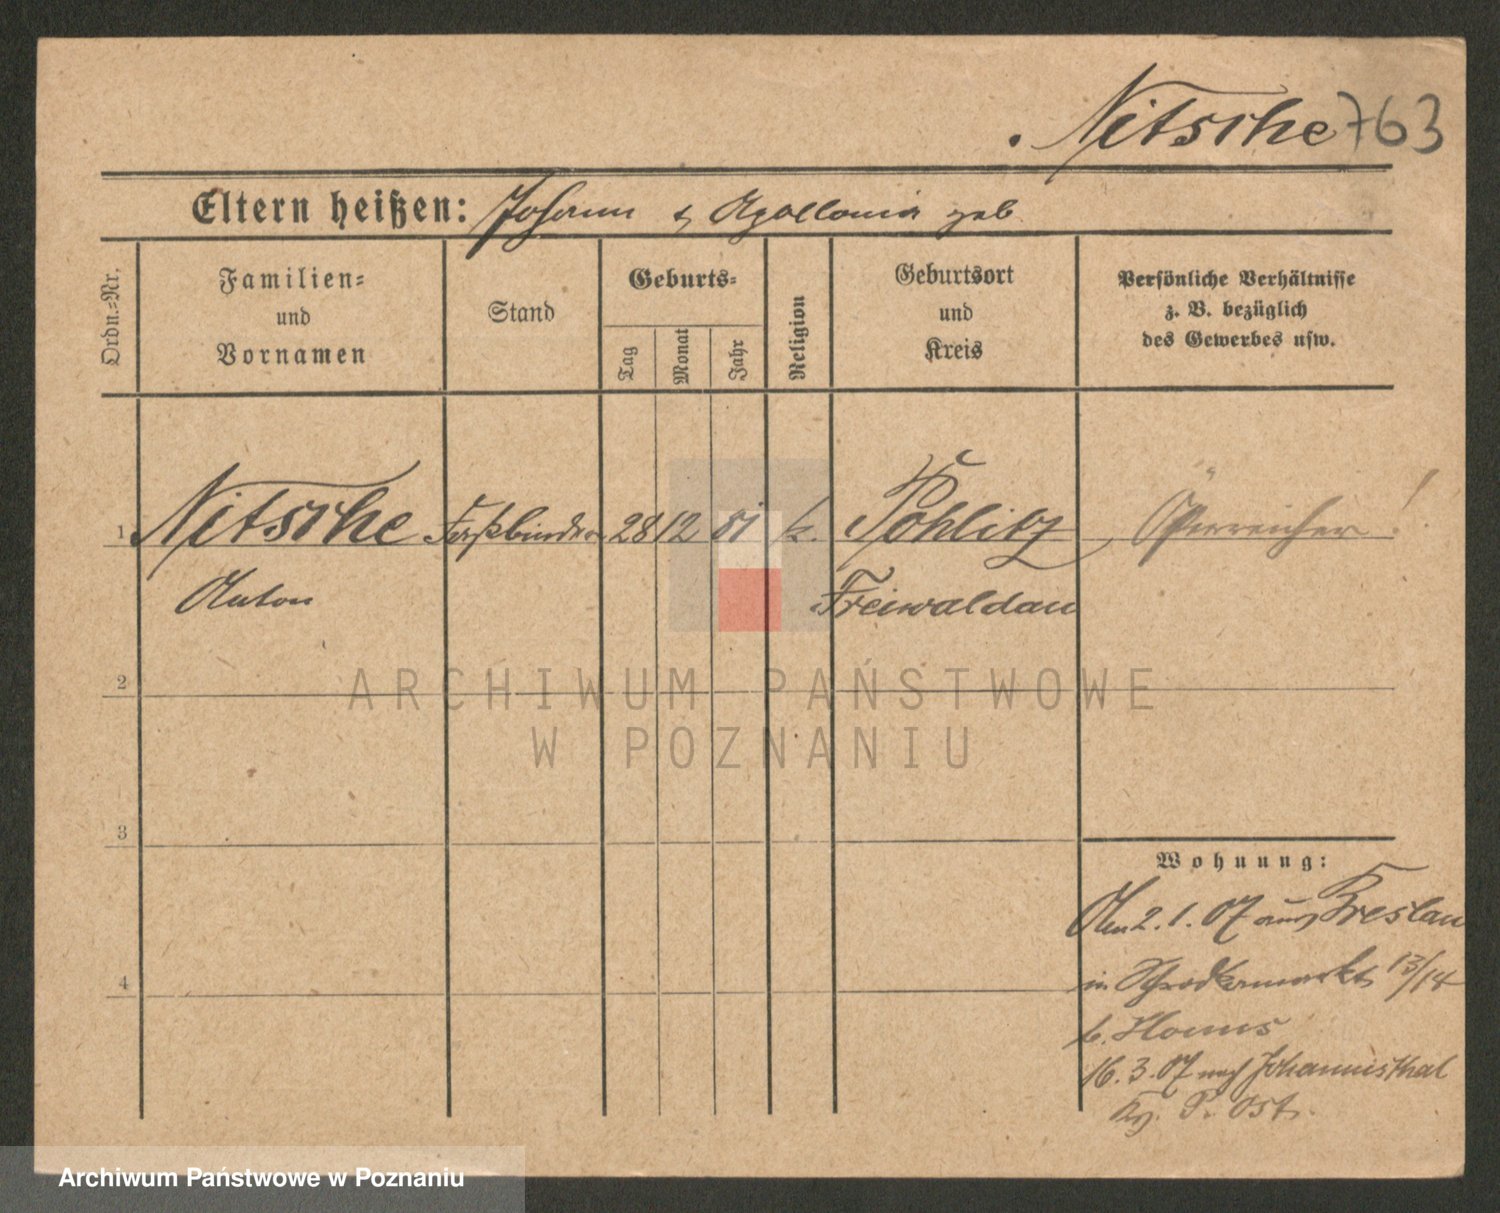 Nitsche 763
Eltern heißen: Johann & Apollonia geb
Ordn.=Nr.
Familien=
und
Vornamen
Stand
Geburts=
Tag
Monat
Jahr
Religion
Geburtsort
und
Kreis
Persönliche Verhältnisse
z. B. bezüglich
des Gewerbes usw.
1 Nitsche Faßbinder 28 12 81 k. Pohlitz Österreicher!
Anton Freiwaldau
2
ARCHIWUM PAŃSTWOWE
W POZNANIU
3
Wohnung:
2.1.07 aus Breslau
4
in Schrodkermarkt 13/14
b.
16.3.07 nach Johannisthal
P. Ost.
Archiwum Państwowe w Poznaniu